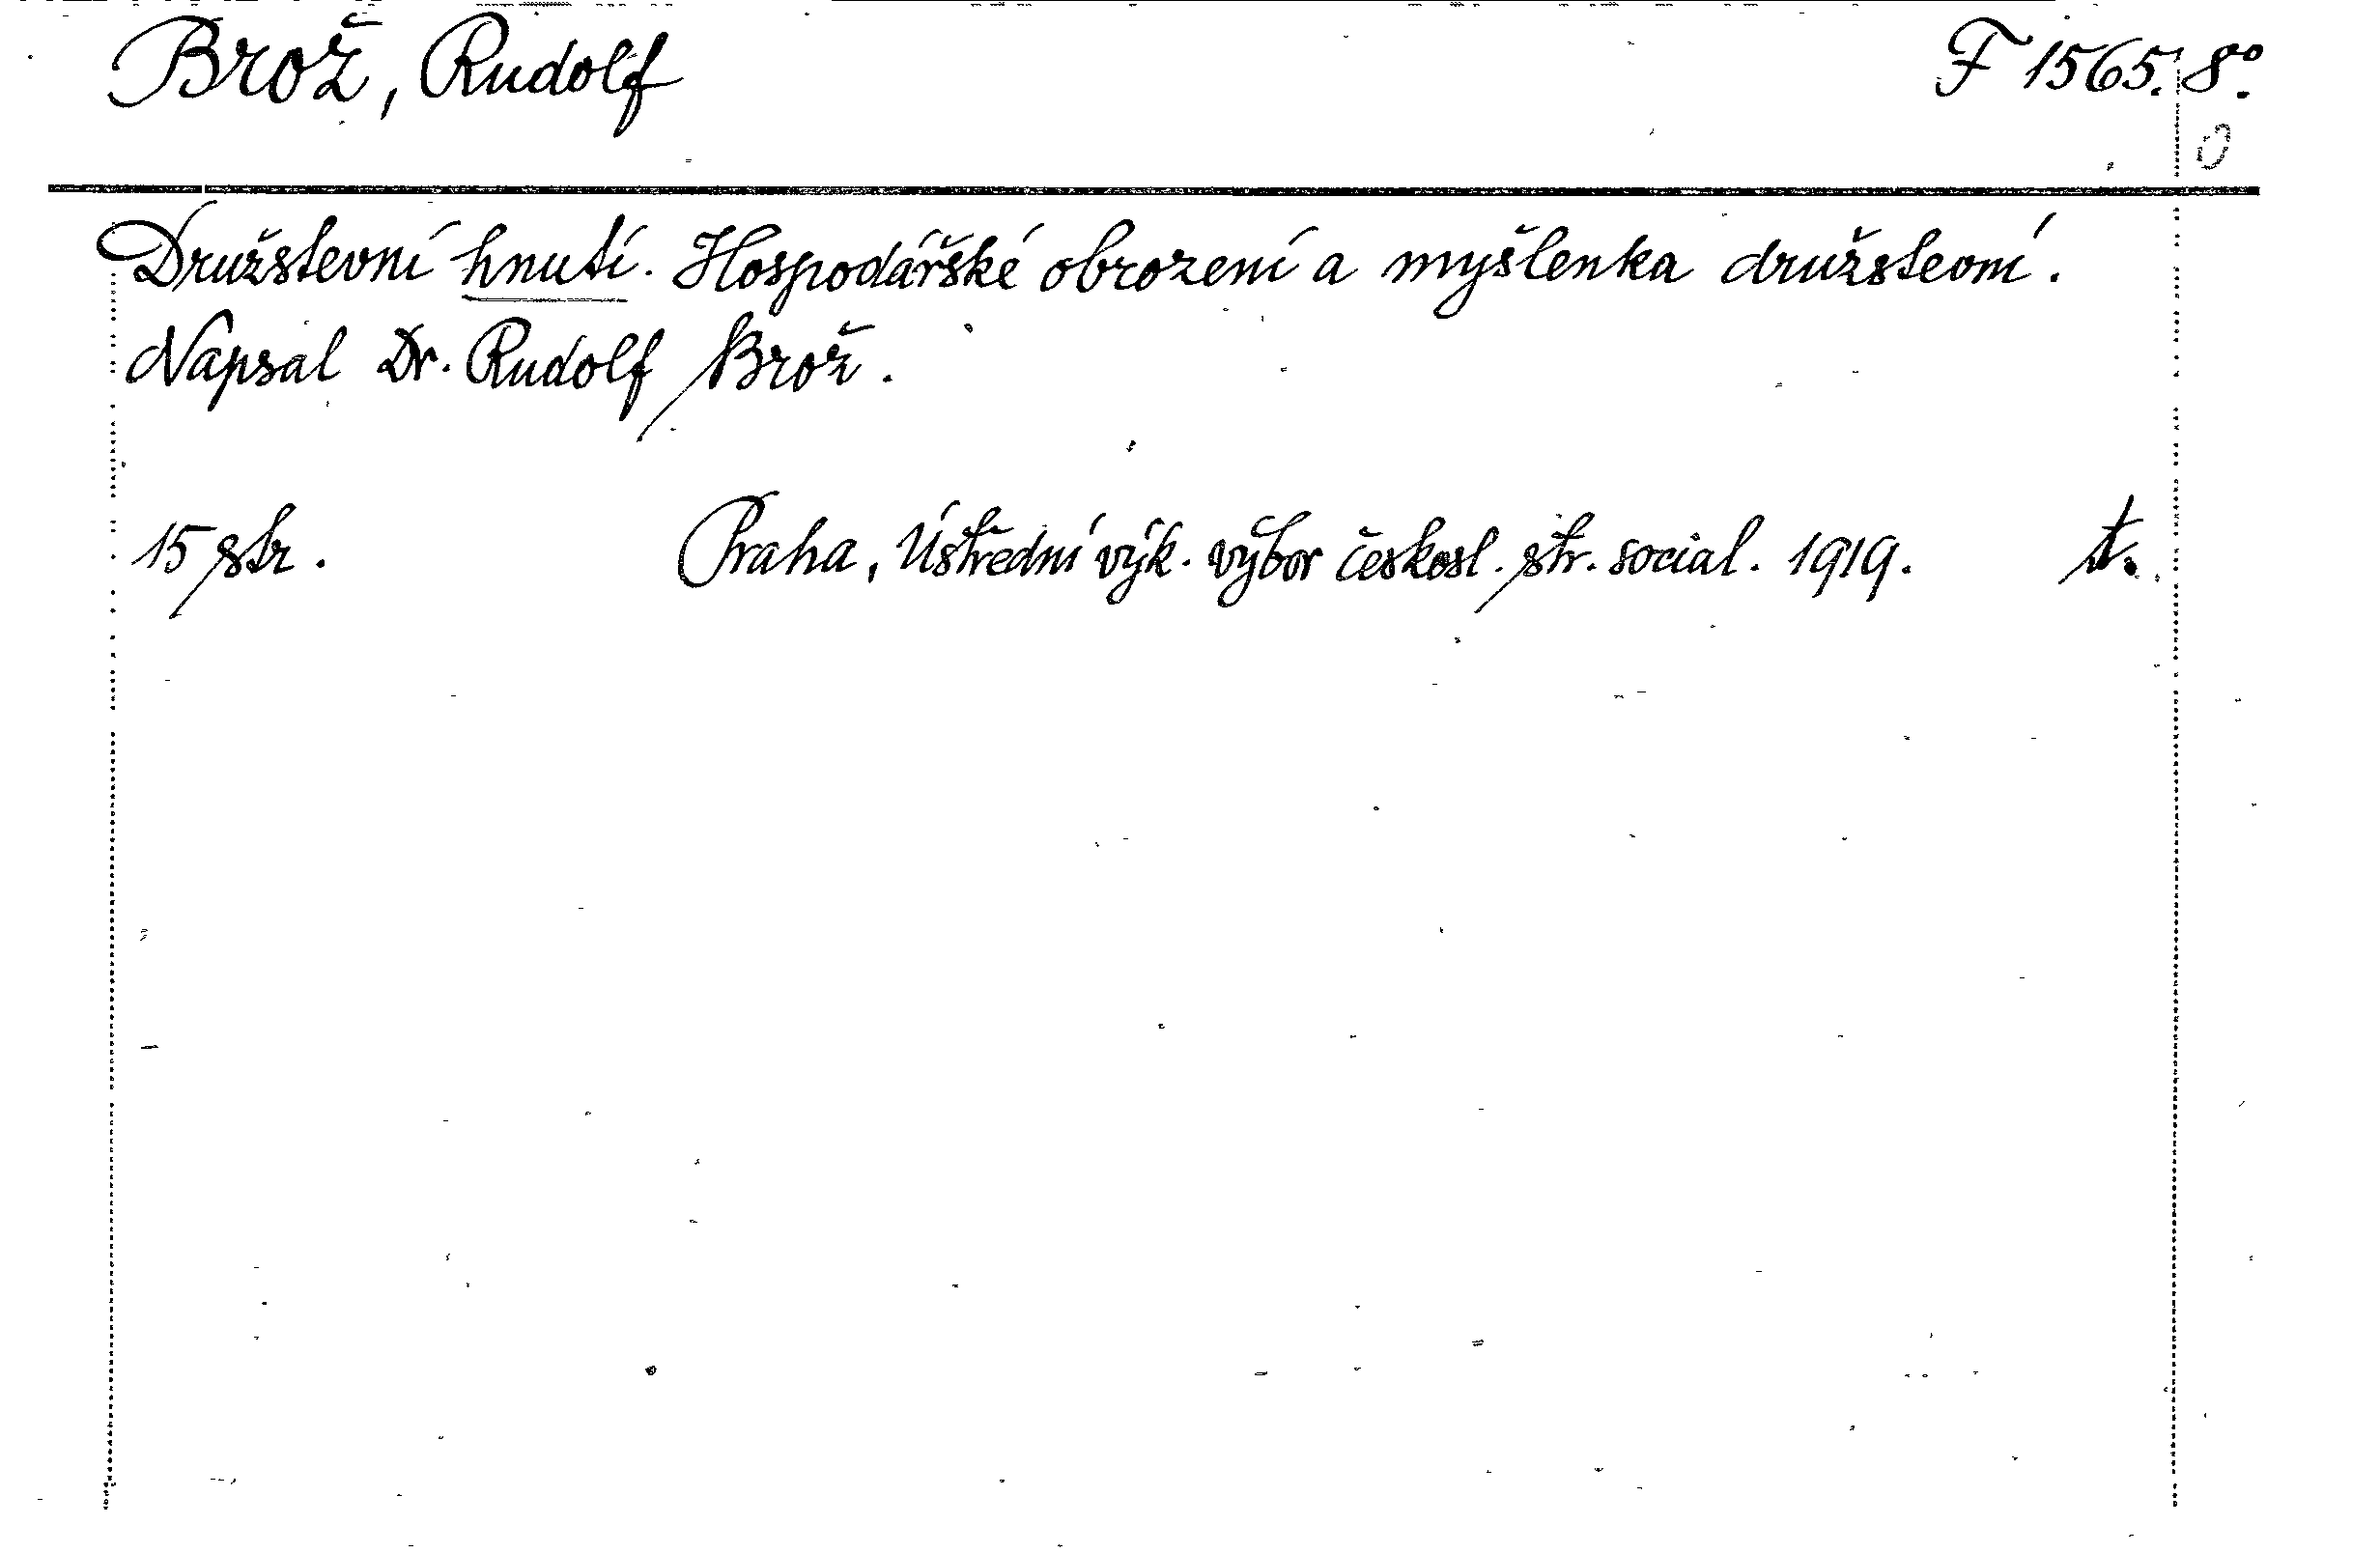 Brož, Rudolf F 1565. 8°.
Družstevní hnutí. Hospodářské obrození a myšlenka družstevní.
Napsal Dr. Rudolf Brož.
15 str. Praha, Ústřední výk. výbor českosl. str. social. 1919. t.